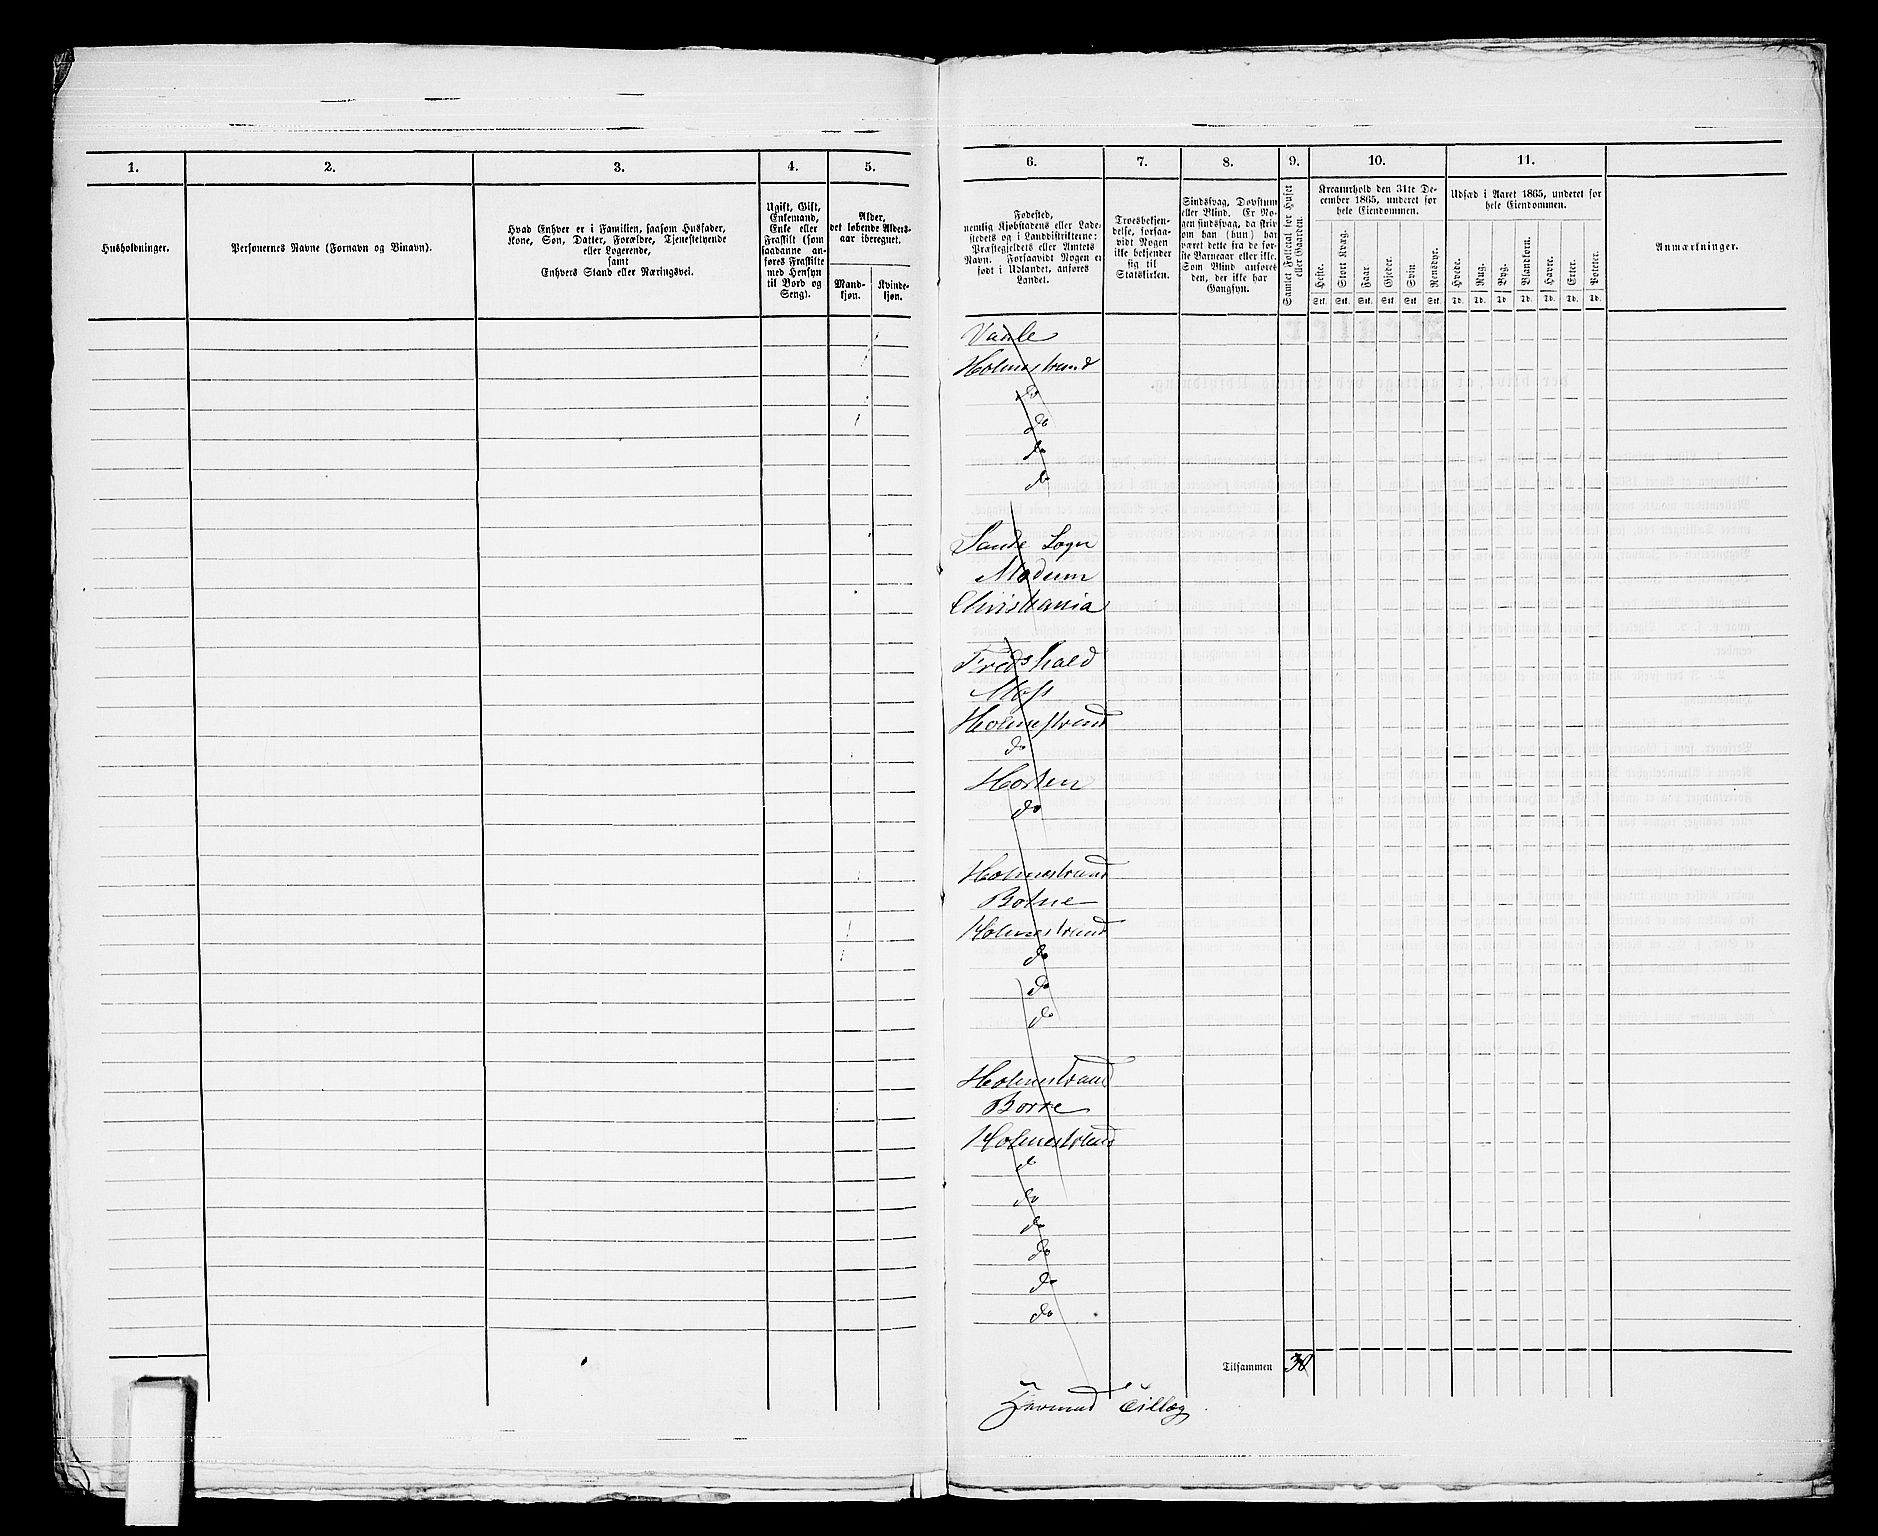 1.
2.
3.
4.
5.
Husholdninger.
Personernes Navne (Fornavn og Binavn).
Hvad Enhver er i Familien, saasom Husfader,
Kone, Søn, Datter, Forældre, Tjenestetyende
eller Logerende,
samt
Enhvers Stand eller Næringsvei.
Ugift, Gift,
Enkemand,
Enke eller
Fraskilt (som
saadanne an-
føres Fraskilte
med Hensyn
til Bord og
Seng).
Alder,
det løbende Alders-
aar iberegnet.
Mand-
kjøn.
Kvinde-
kjøn.
6.
7.
8.
9.
10.
11.
Fødested,
nemlig Kjøbstadens eller Lade-
stedets og i Landdistrikterne:
Præstegjeldets eller Amtets
Navn. Forsaavidt Nogen er
født i Udlandet, anføres
Landet.
Troesbekjen-
delse, forsaa-
vidt Nogen
ikke bekjender
sig til
Statskirken.
Sindssvag, Døvstum
eller Blind. Er No-
gen sindssvag, da skriv
om han (hun) har
været dette fra de før-
ste Barneaar eller ikke.
Som Blind anføres
den, der ikke har
Gangsyn.
Samlet Folketal for Huset
eller Gaarden.
Kreaturhold den 31te De-
cember 1865, underet for
hele Eiendommen.
Heste.
Stort Kvæg.
Faar.
Gjeder.
Svin.
Rensdyr.
Stk. Stk. Stk. Stk. Stk. Stk.
Udsæd i Aaret 1865, underet for
hele Eiendommen.
Hvede.
Rug.
Byg.
Blandkorn.
Havre.
Erter.
Poteter.
Td. Td. Td. Td. Td. Td. Td.
Anmærkninger.
Vaale
Holmestrand
do
do
do
do
Sande Sogn
Modum
Christiania
Fredshald
Moss
Holmestrand
do
Horten
do
Holmestrand
Botne
Holmestrand
do
do
do
Holmestrand
Borre
Holmestrand
do
do
do
do
do
do
Tilsammen